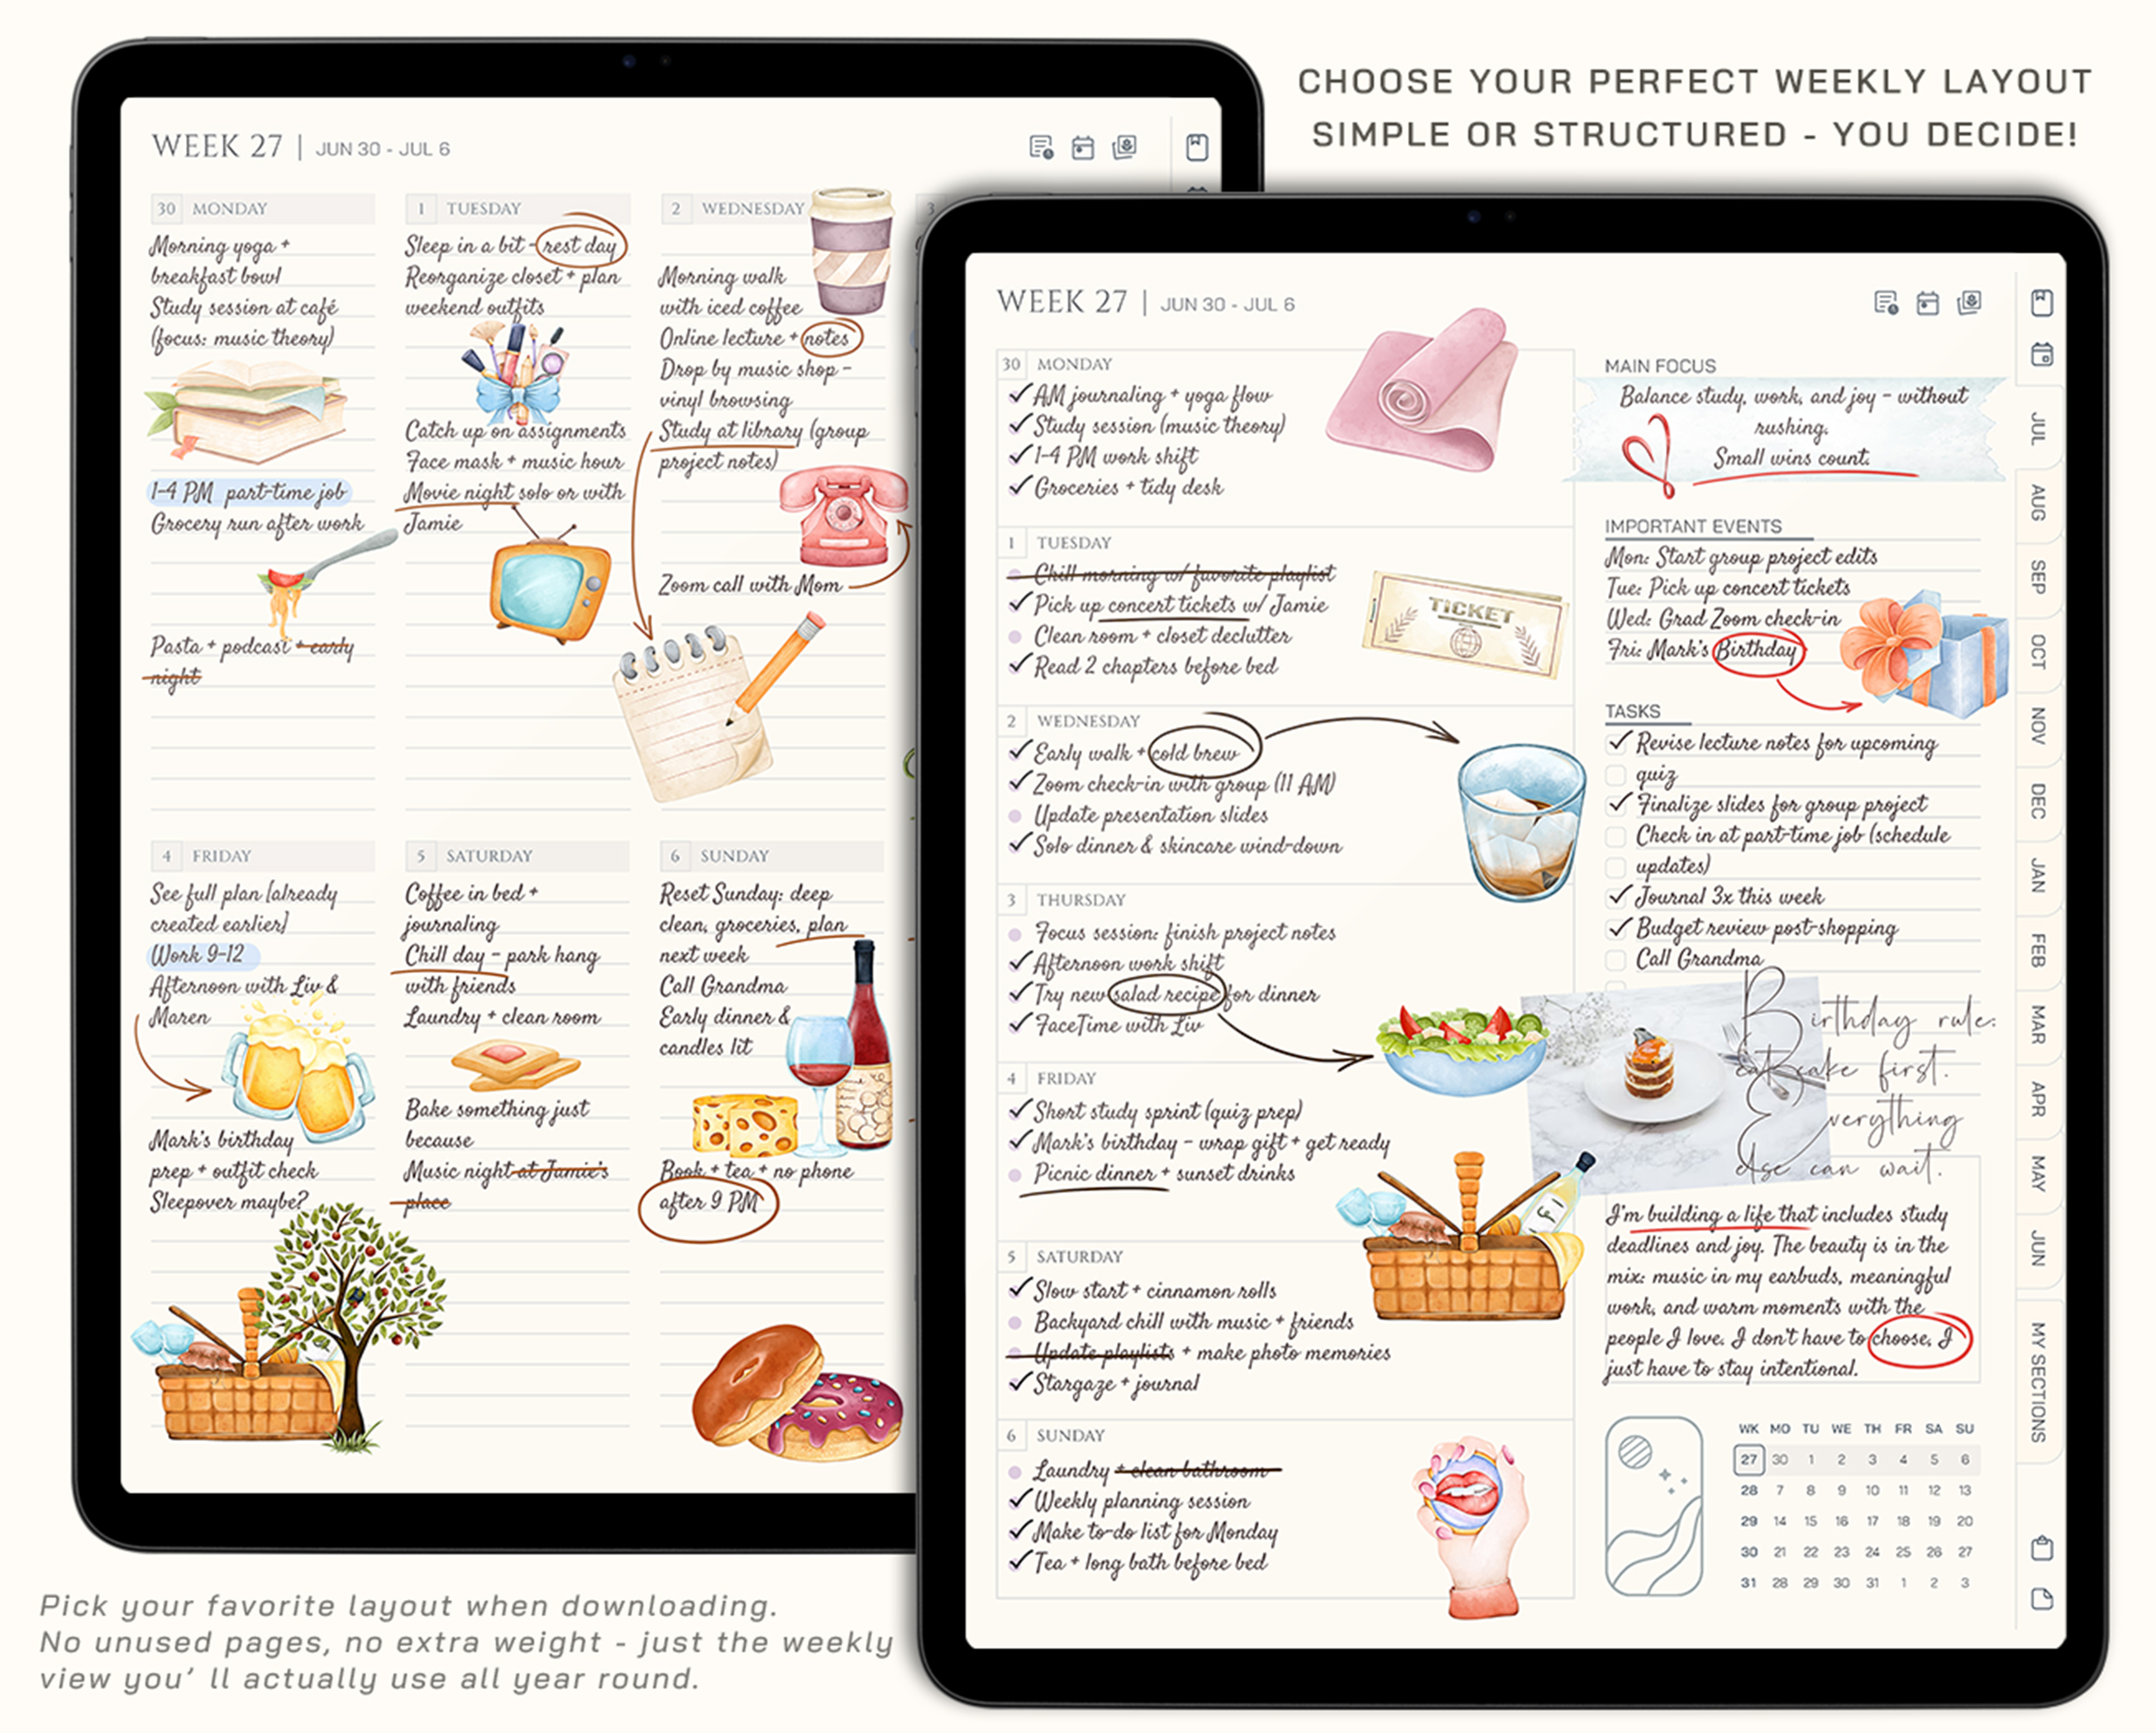 CHOOSE YOUR PERFECT WEEKLY LAYOUT
SIMPLE OR STRUCTURED - YOU DECIDE!
WEEK 27 | JUN 30 - JUL 6
30 MONDAY
Morning yoga +
breakfast bowl
Study session at café
(focus: music theory)
1-4 PM part-time job
Grocery run after work
Pasta + podcast + early
night
1 TUESDAY
Sleep in a bit - rest day
Reorganize closet + plan
weekend outfits
Catch up on assignments
Face mask + music hour
Movie night solo or with
Jamie
2 WEDNESDAY
Morning walk
with iced coffee
Online lecture + notes
Drop by music shop -
vinyl browsing
Study at library (group
project notes)
Zoom call with Mom
3
4 FRIDAY
See full plan [already
created earlier]
Work 9-12
Afternoon with Liv &
Maren
Mark's birthday
prep + outfit check
Sleepover maybe?
5 SATURDAY
Coffee in bed +
journaling
Chill day - park hang
with friends
Laundry + clean room
Bake something just
because
Music night at Jamie's
place
6 SUNDAY
Reset Sunday: deep
clean, groceries, plan
next week
Call Grandma
Early dinner &
candles lit
Book + tea + no phone
after 9 PM
WEEK 27 | JUN 30 - JUL 6
30 MONDAY
AM journaling + yoga flow
Study session (music theory)
1-4 PM work shift
Groceries + tidy desk
1 TUESDAY
Chill morning w/ favorite playlist
Pick up concert tickets w/ Jamie
Clean room + closet declutter
Read 2 chapters before bed
TICKET
2 WEDNESDAY
Early walk + cold brew
Zoom check-in with group (11 AM)
Update presentation slides
Solo dinner & skincare wind-down
3 THURSDAY
Focus session: finish project notes
Afternoon work shift
Try new salad recipe for dinner
FaceTime with Liv
4 FRIDAY
Short study sprint (quiz prep)
Mark's birthday - wrap gift + get ready
Picnic dinner + sunset drinks
5 SATURDAY
Slow start + cinnamon rolls
Backyard chill with music + friends
Update playlists + make photo memories
Stargaze + journal
6 SUNDAY
Laundry + clean bathroom
Weekly planning session
Make to-do list for Monday
Tea + long bath before bed
MAIN FOCUS
Balance study, work, and joy - without
rushing.
Small wins count.
IMPORTANT EVENTS
Mon: Start group project edits
Tue: Pick up concert tickets
Wed: Grad Zoom check-in
Fri: Mark's Birthday
TASKS
Revise lecture notes for upcoming
quiz
Finalize slides for group project
Check in at part-time job (schedule
updates)
Journal 3x this week
Budget review post-shopping
Call Grandma
Birthday rule:
cake first.
Everything
else can wait.
I'm building a life that includes study
deadlines and joy. The beauty is in the
mix: music in my earbuds, meaningful
work, and warm moments with the
people I love. I don't have to choose, I
just have to stay intentional.
WK MO TU WE TH FR SA SU
27 30 1 2 3 4 5 6
28 7 8 9 10 11 12 13
29 14 15 16 17 18 19 20
30 21 22 23 24 25 26 27
31 28 29 30 31 1 2 3
JUL
AUG
SEP
OCT
NOV
DEC
JAN
FEB
MAR
APR
MAY
JUN
MY SECTIONS
Pick your favorite layout when downloading.
No unused pages, no extra weight - just the weekly
view you' ll actually use all year round.